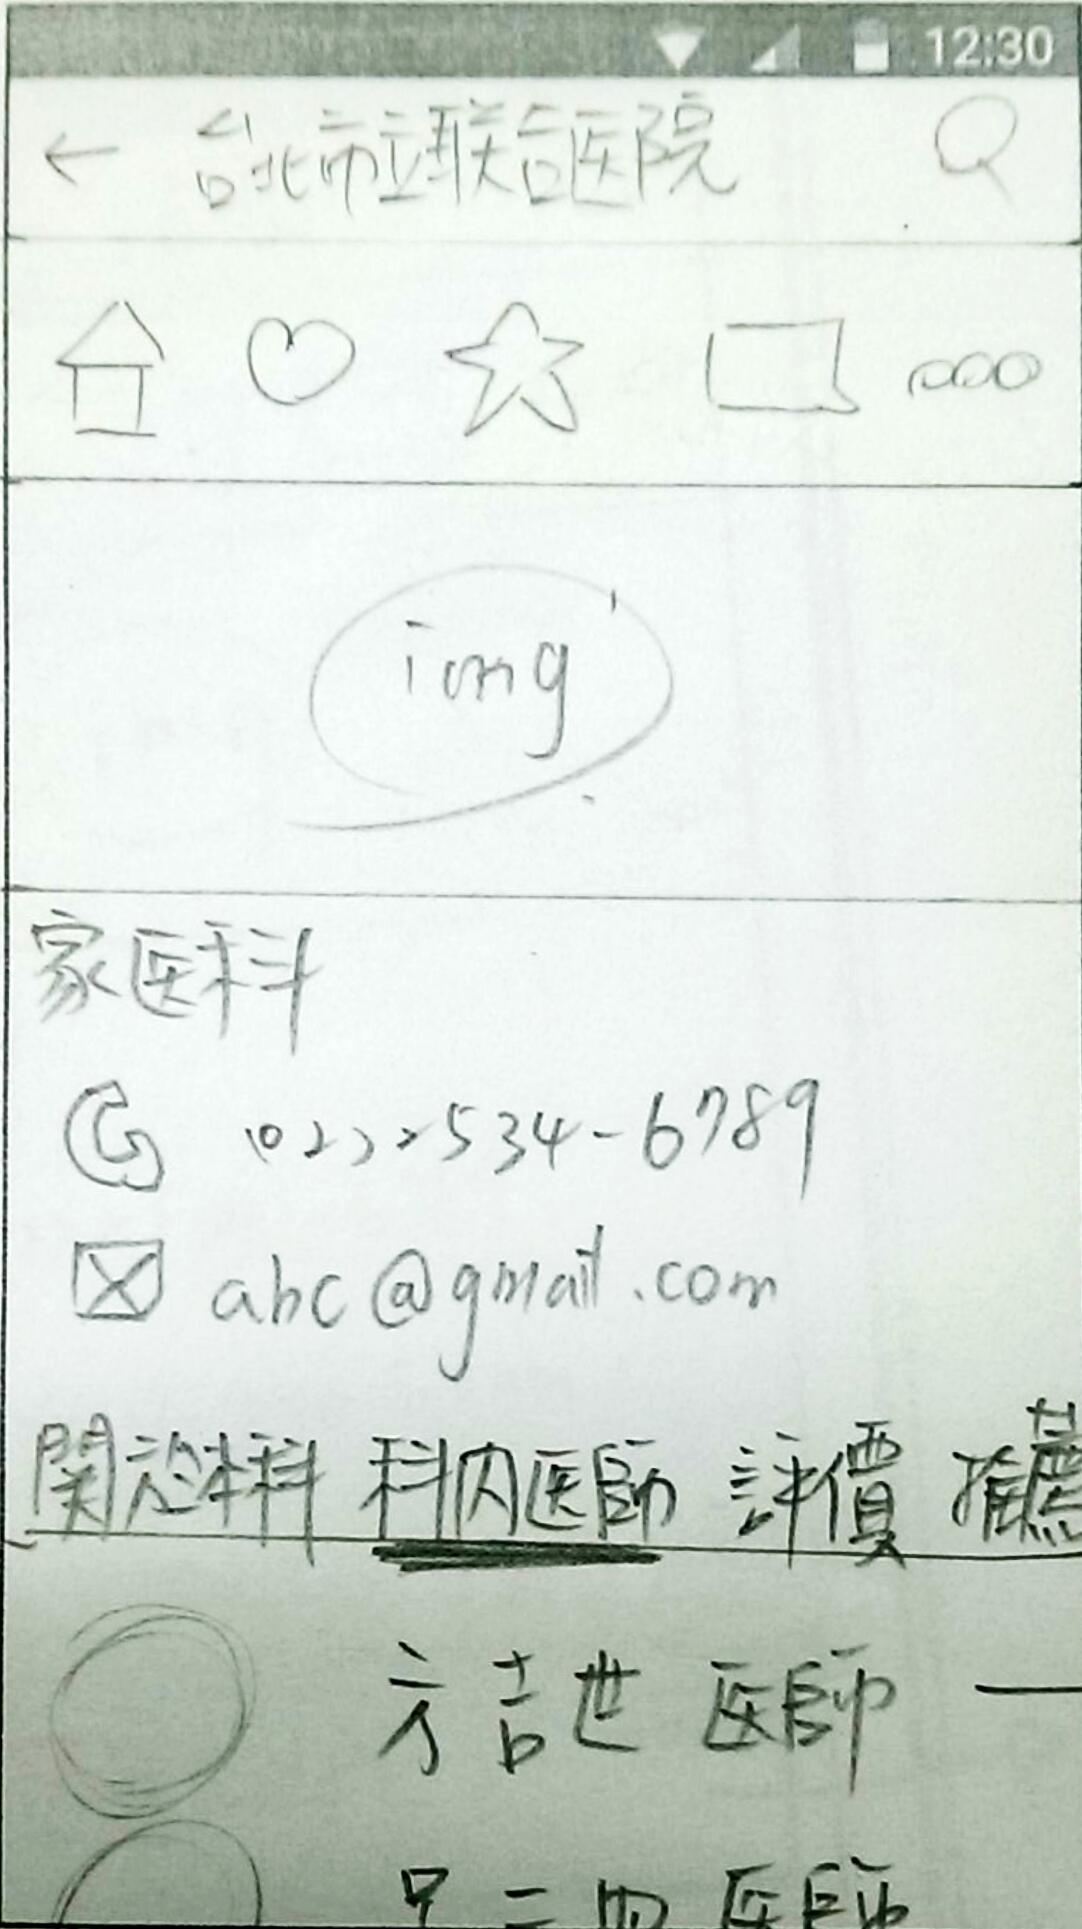 12:30
台北市立联合医院
img
家医科
(02)2534-6789
abc@gmail.com
関於本科 科内医師 評價 推薦
方吉世 医師
医師